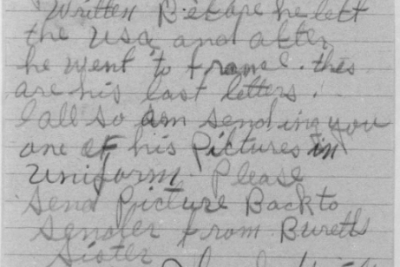 Written Before he left
the USA and after
he went to France. this
are his last letters.
I all so am sending you
one of his Pictures in
uniform. Please
send Picture Back to
sender from Bureths
Sister